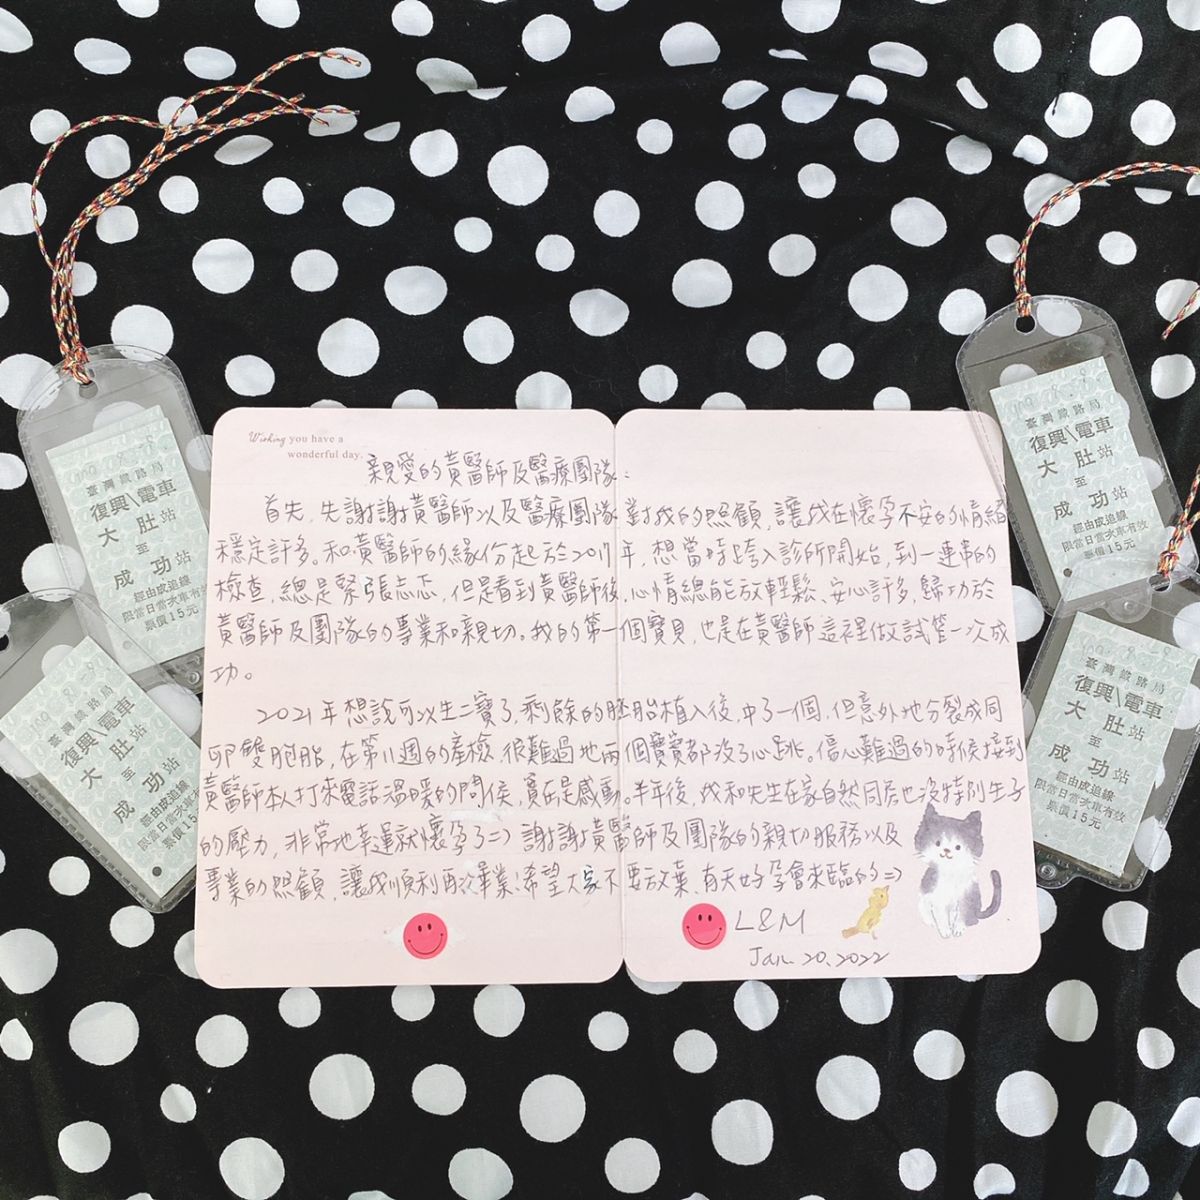 Wishing you have a
wonderful day.
親愛的黃醫師及醫療團隊：
首先，先謝謝黃醫師以及醫療團隊對我的照顧，讓我在懷孕不安的情緒
穩定許多。和黃醫師的緣份起於2017年，想當時跨入診所開始，到一連串的
檢查，總是緊張忐忑，但是看到黃醫師後，心情總能放輕鬆、安心許多，歸功於
黃醫師及團隊的專業和親切。我的第一個寶貝，也是在黃醫師這裡做試管一次成
功。
2021年想說可以生二寶了，剩餘的胚胎植入後，中了一個，但意外地分裂成同
卵雙胞胎，在第11週的產檢，很難過地兩個寶寶都沒了心跳。傷心難過的時候接到
黃醫師本人打來電話溫暖的問候，實在是感動。半年後，我和先生在家自然同房也沒特別生子
的壓力，非常地幸運就懷孕了=) 謝謝黃醫師及團隊的親切服務以及
專業的照顧，讓我順利再次畢業！希望大家不要放棄，有天好孕會來臨的=)
L&M
Jan. 20, 2022
臺灣鐵路局
復興\電車
大肚站
至
成功站
經由成追線
限當日當次車有效
票價15元
臺灣鐵路局
復興\電車
大肚站
至
成功站
經由成追線
限當日當次車有效
票價15元
臺灣鐵路局
復興\電車
大肚站
至
成功站
經由成追線
限當日當次車有效
票價15元
臺灣鐵路局
復興\電車
大肚站
至
成功站
經由成追線
限當日當次車有效
票價15元